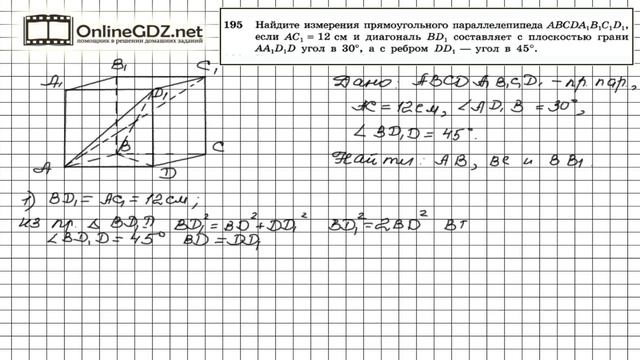 OnlineGDZ.net
помощник в решении домашних заданий
195 Найдите измерения прямоугольного параллелепипеда ABCDA₁B₁C₁D₁,
если AC₁ = 12 см и диагональ BD₁ составляет с плоскостью грани
AA₁D₁D угол в 30°, а с ребром DD₁ — угол в 45°.
A₁ B₁ C₁ D₁
A B C D
Дано: ABCDA₁B₁C₁D₁ – пр. пар,
AC₁ = 12 см, ∠AD₁B = 30°,
∠BD₁D = 45°.
Найти: AB, BC и BB₁.
1) BD₁ = AC₁ = 12 см;
из пр. Δ BD₁D BD₁² = BD² + DD₁² BD₁² = 2BD²
∠BD₁D = 45° BD = DD₁